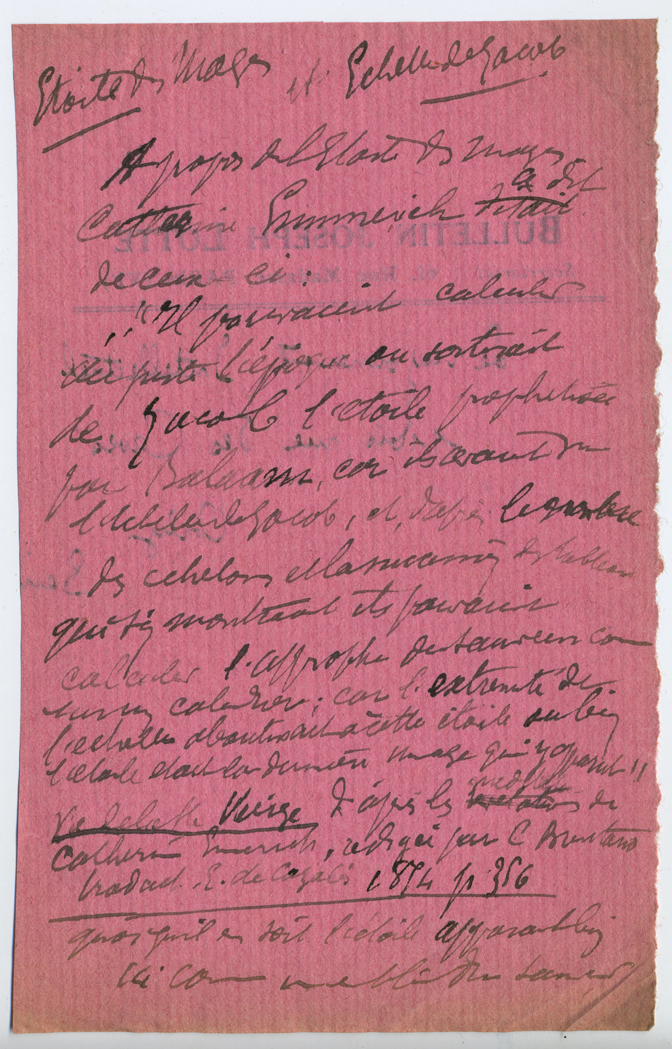 Etoile des Mages et Echelle de Jacob
A propos de l'Etoile des mages
Catherine Emmerich a dit
de ceux ci :
"Il pouvaient calculer
au juste l'époque ou sortirait
de Jacob l'étoile prophetisée
par Balaam, car ils avaient vu
l'échelle de Jacob, et, d'après le nombre
des echelons et la succession des tableaux
qui s'y montrait ils pouvaient
calculer l'approche du sauveur com
sur un calendrier ; car l'extremité de
l'echelle aboutissait a cette étoile ou bien
l'étoile etait la dernière image qui y apparut "
Vie de la Ste Vierge d'après les meditations de
Catherine Emmerich, redigée par C Brentano
traduct. E. de Cazalès 1874 p 356
quoiqu'il en soit l'étoile apparait bien
ici com un du sauveur
BULLETIN JOSEPH LOTTE